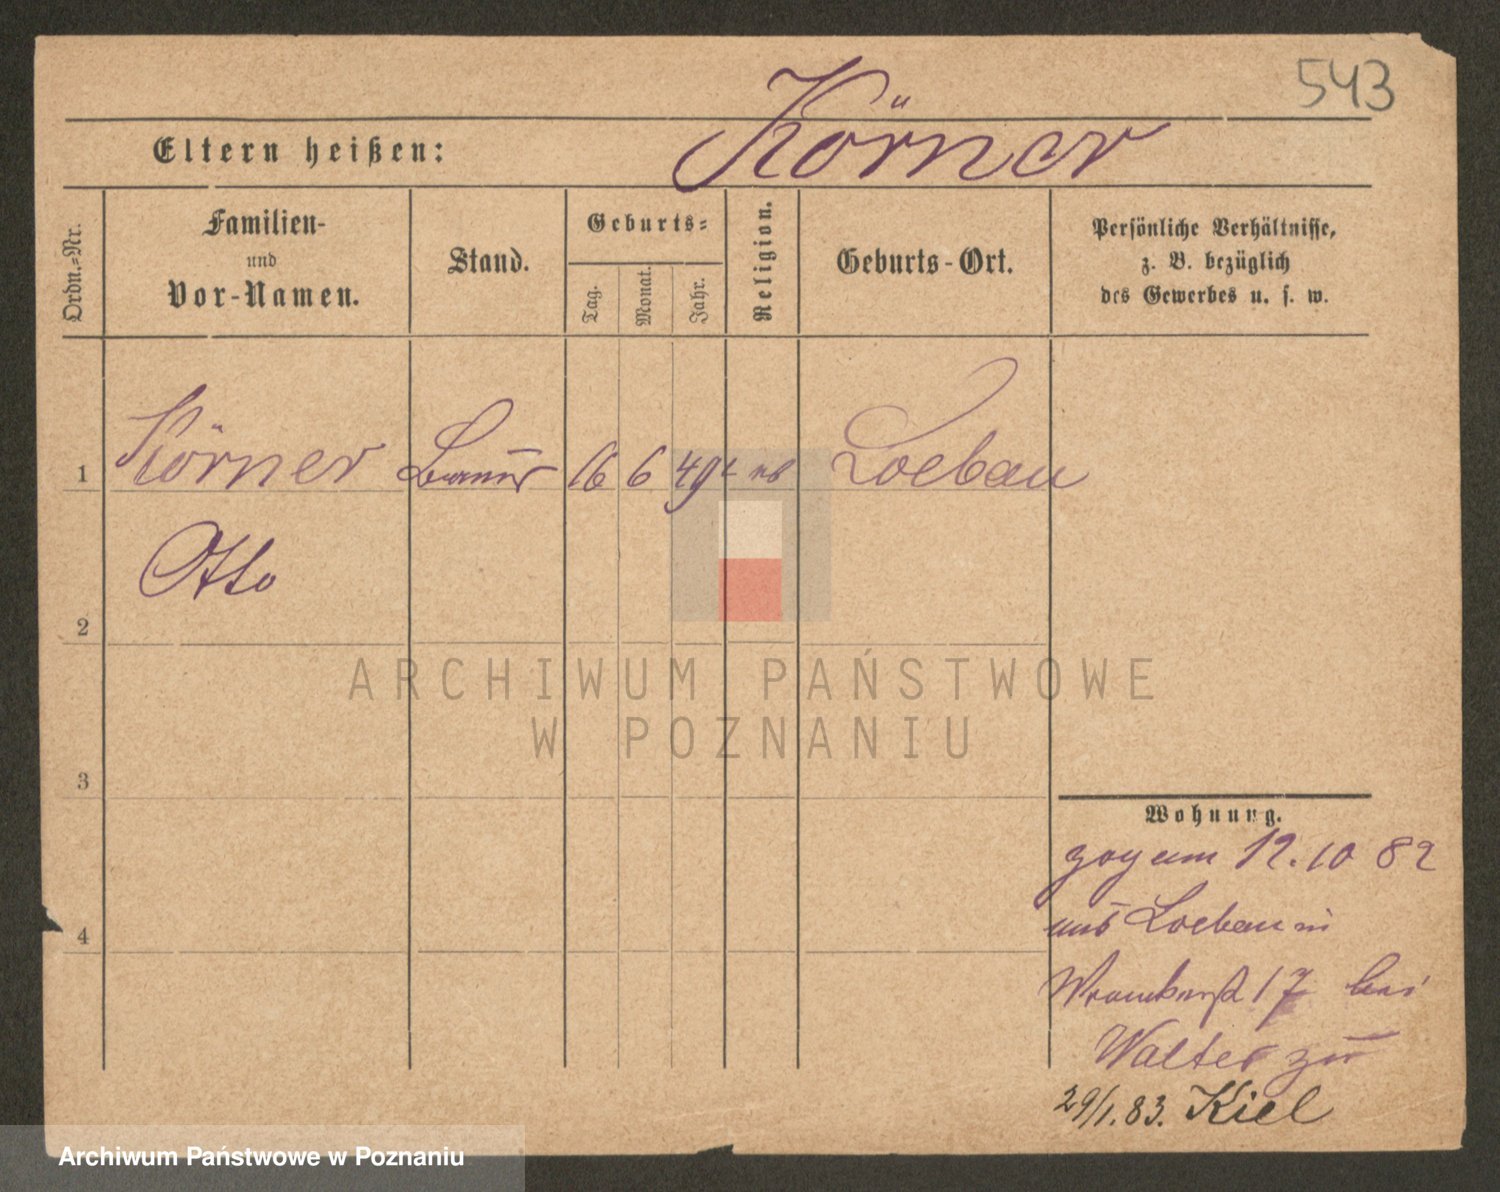 543
Körner
Eltern heißen:
Ordn.-Nr.
Familien-
und
Vor-Namen.
Stand.
Geburts-
Tag.
Monat.
Jahr.
Religion.
Geburts-Ort.
Persönliche Verhältnisse,
z. B. bezüglich
des Gewerbes u. s. w.
1 Körner 16 6 49 Loebau
Otto
2
3
4
Wohnung.
zog am 12.10 82
aus Loebau in
17 bei
Walter zu
29/1.83. Kiel
ARCHIWUM PAŃSTWOWE
W POZNANIU
Archiwum Państwowe w Poznaniu